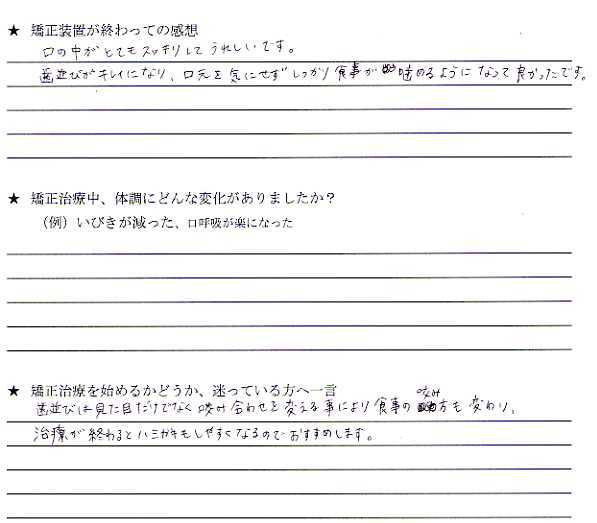 ★ 矯正装置が終わっての感想
口の中がとてもスッキリしてうれしいです。
歯並びがキレイになり、口元を気にせずしっかり食事が噛めるようになって良かったです。
★ 矯正治療中、体調にどんな変化がありましたか？
（例）いびきが減った、口呼吸が楽になった
★ 矯正治療を始めるかどうか、迷っている方へ一言
歯並びは見た目だけでなく咬み合わせを変える事により食事の咬み方も変わり、
治療が終わるとハミガキもしやすくなるのでおすすめします。